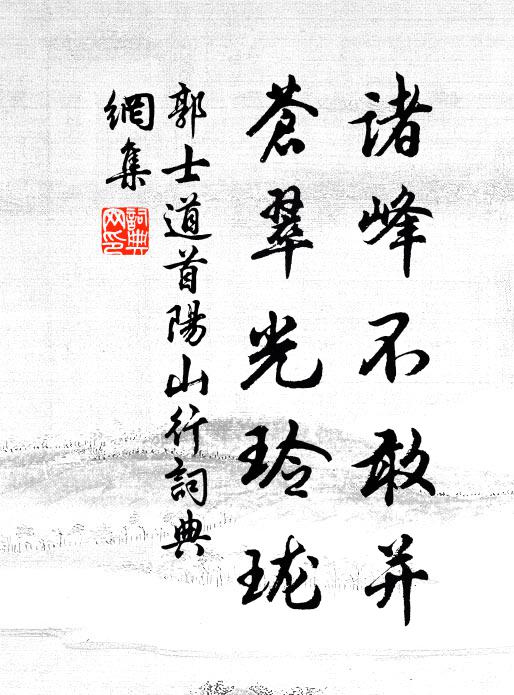 諸峰不敢并
蒼翠光玲珑
郭士道首陽山行詞典
網集
詞典
网印